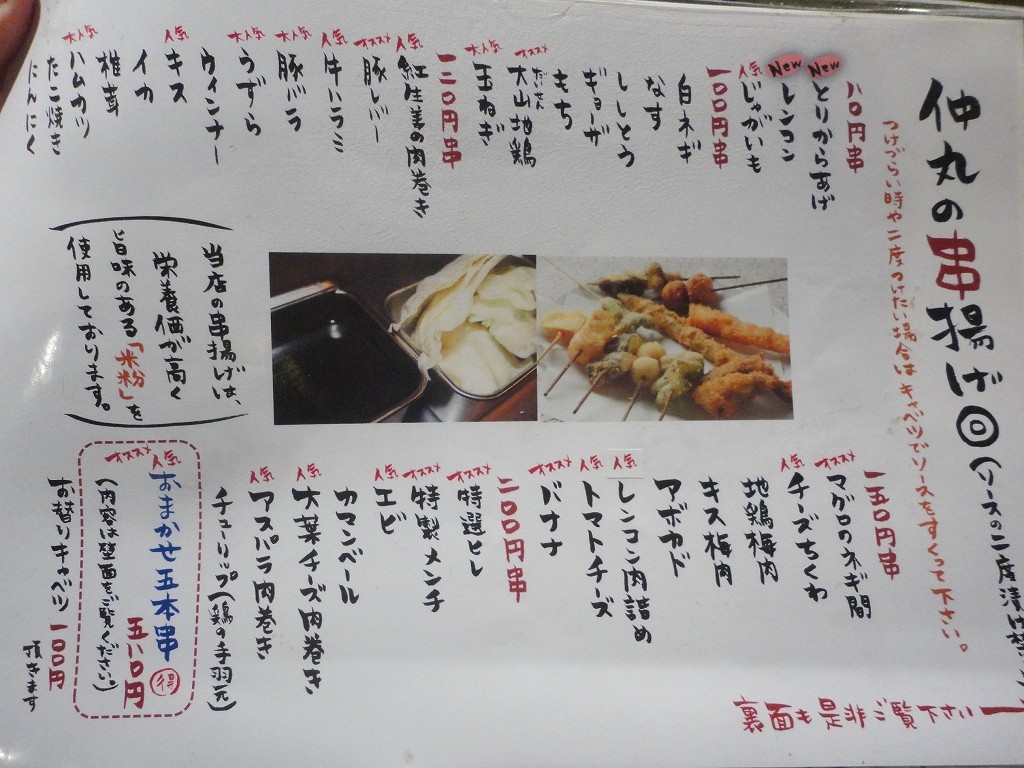 仲丸の串揚げ回(ソースの二度漬け禁
つけづらい時や二度つけたい場合はキャベツでソースをすくって下さい。
八〇円串
New とりからあげ
New レンコン
人気 じゃがいも
一〇〇円串
白ネギ
なす
ししとう
ギョーザ
もち
オススメ 大山地鶏
だいせん
大人気 玉ねぎ
一二〇円串
人気 紅生姜の肉巻き
オススメ 豚レバー
人気 牛ハラミ
大人気 豚バラ
大人気 うずら
ウィンナー
人気 キス
イカ
椎茸
大人気 ハムカツ
たこ焼き
にんにく
当店の串揚げは、
栄養価が高く
旨味のある「米粉」を
使用しております。
一五〇円串
オススメ マグロのネギ間
人気 チーズちくわ
地鶏梅肉
キス梅肉
アボカド
人気 レンコン肉詰め
人気 トマトチーズ
オススメ バナナ
二〇〇円串
オススメ 特選ヒレ
オススメ 特製メンチ
人気 エビ
カマンベール
人気 大葉チーズ肉巻き
人気 アスパラ肉巻き
チューリップ(鶏の手羽元)
オススメ おまかせ五本串 得
五八〇円
(内容は壁面をご覧ください。)
お替りキャベツ 一〇〇円
頂きます
裏面も是非ご覧下さい